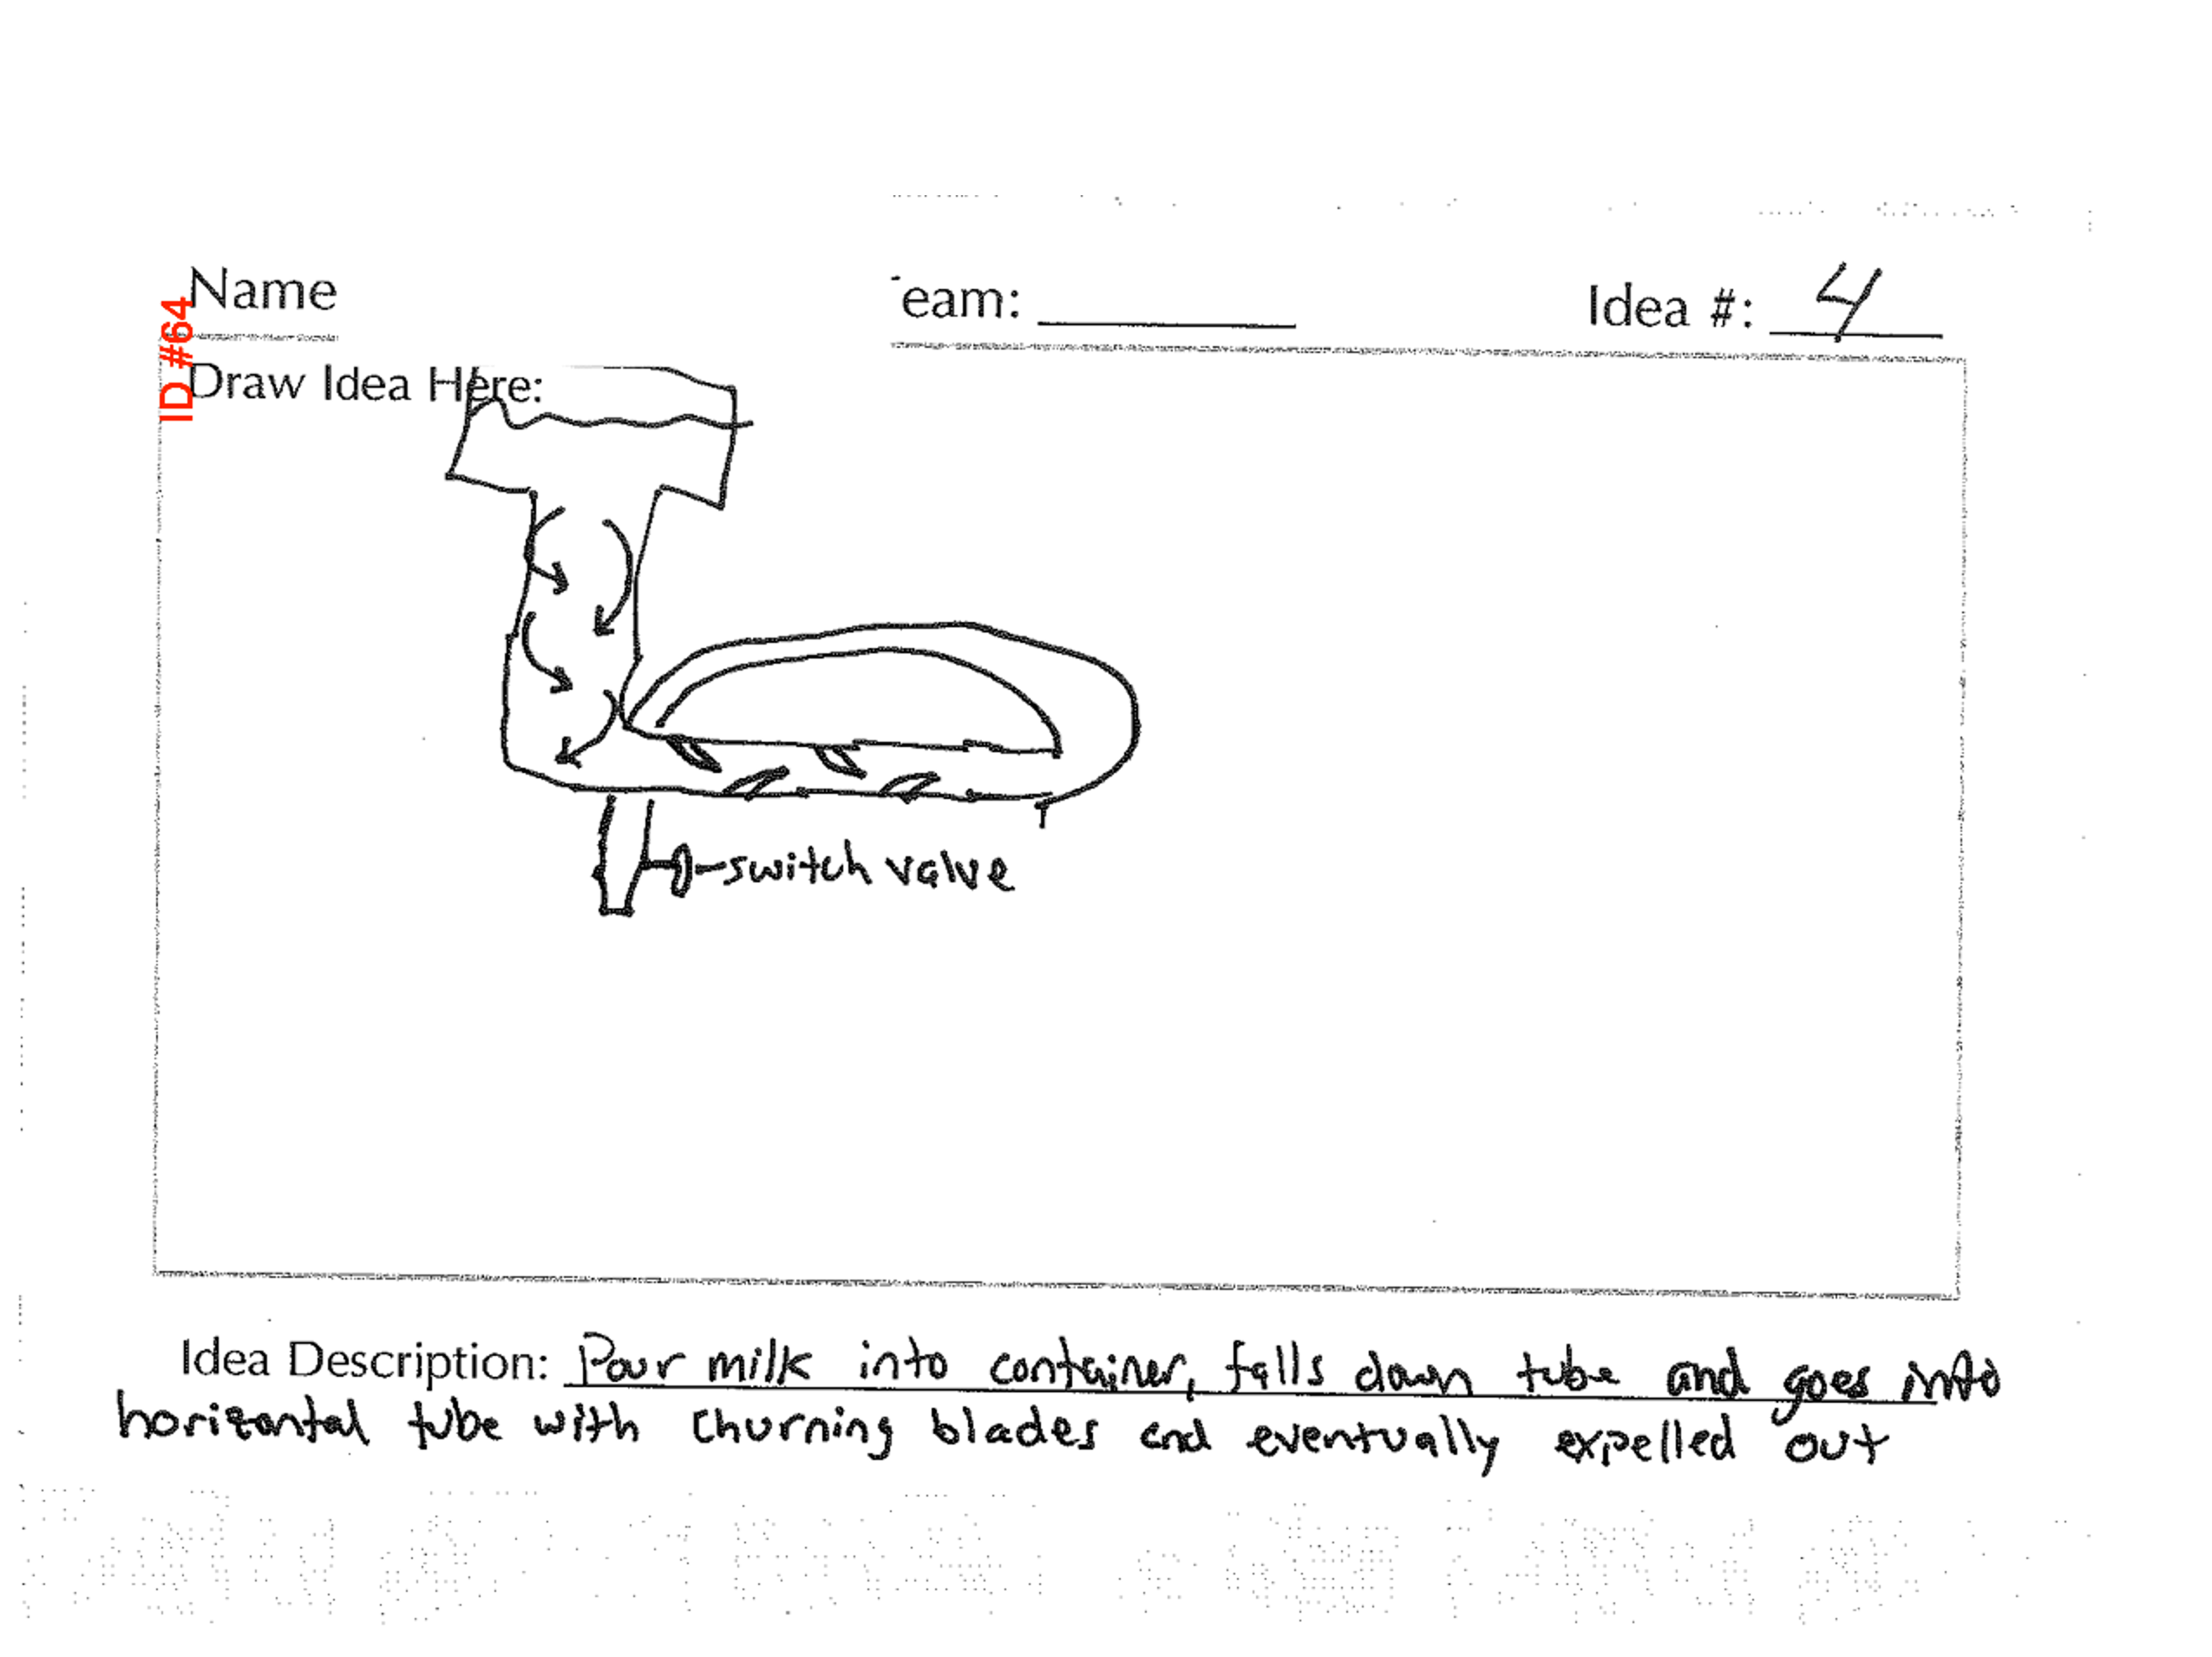 ID #64
Name eam: Idea #: 4
Draw Idea Here:
switch valve
Idea Description: Pour milk into container, falls down tube and goes into
horizontal tube with churning blades and eventually expelled out